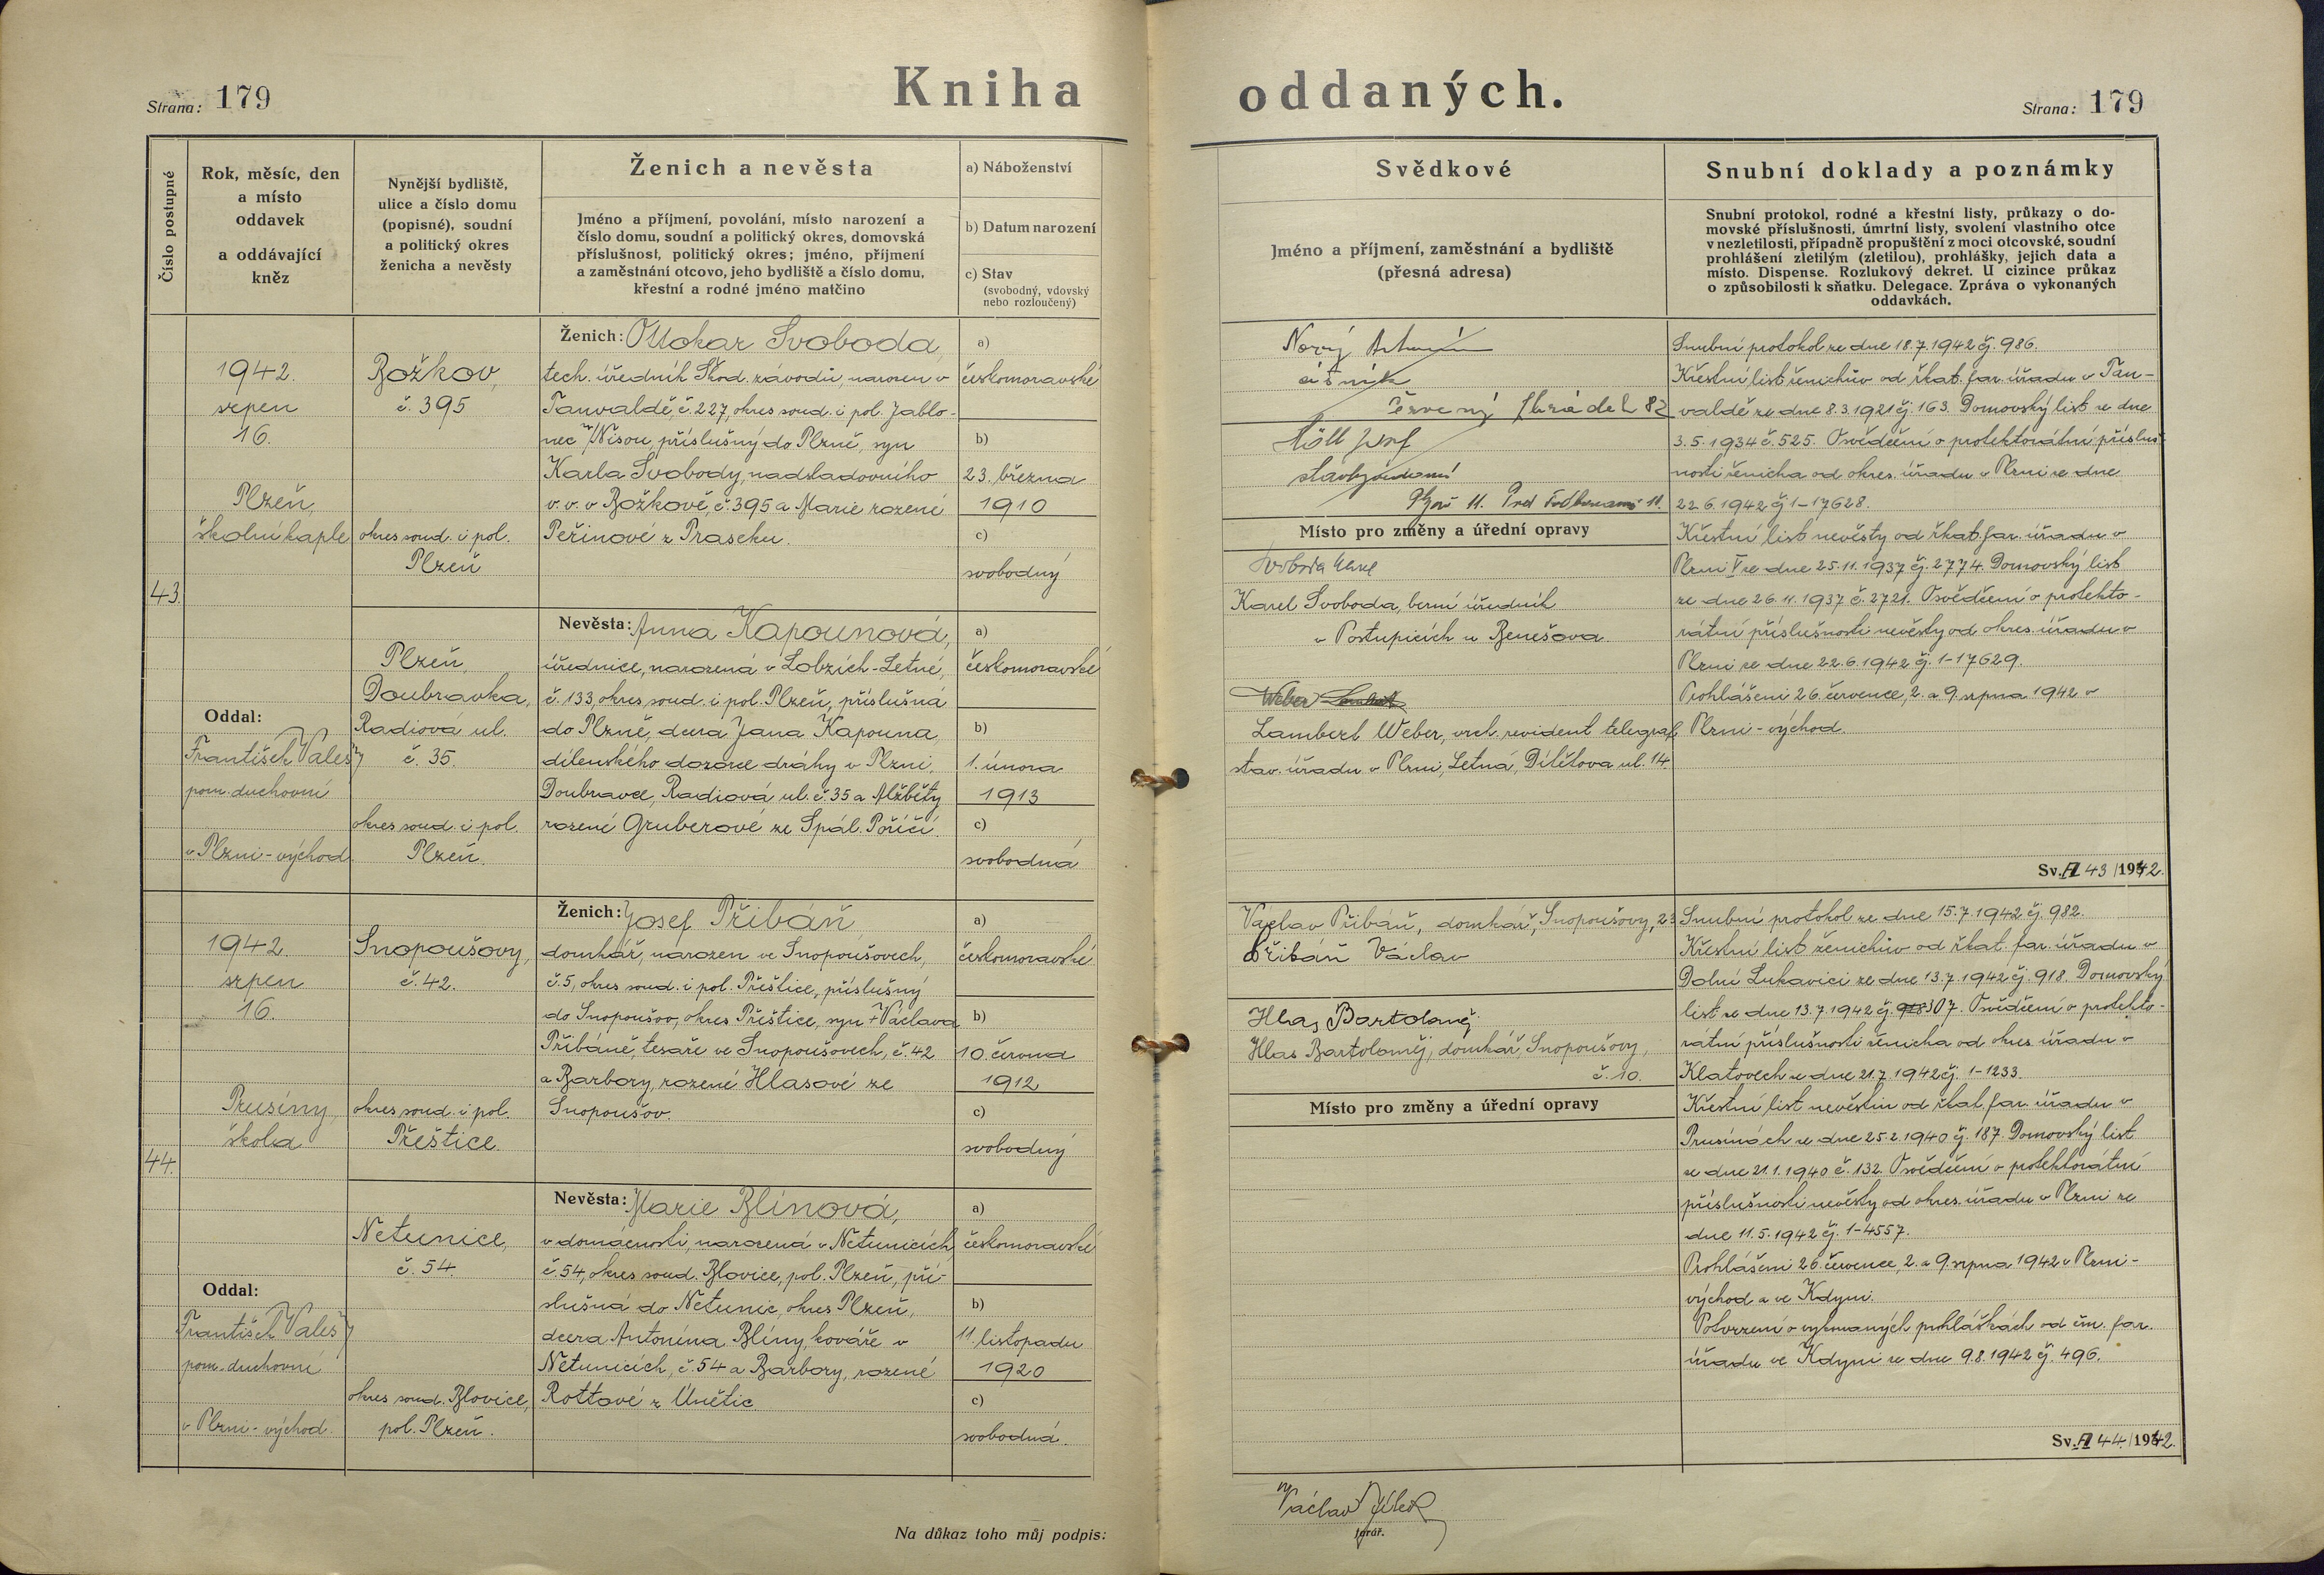 Strana: 179
Kniha oddaných.
Strana: 179
Číslo postupné
Rok, měsíc, den
a místo
oddavek
a oddávající
kněz
Nynější bydliště,
ulice a číslo domu
(popisné), soudní
a politický okres
ženicha a nevěsty
Ženich a nevěsta
Jméno a příjmení, povolání, místo narození a
číslo domu, soudní a politický okres, domovská
příslušnost, politický okres; jméno, příjmení
a zaměstnání otcovo, jeho bydliště a číslo domu,
křestní a rodné jméno matčino
a) Náboženství
b) Datum narození
c) Stav
(svobodný, vdovský
nebo rozloučený)
Svědkové
Jméno a příjmení, zaměstnání a bydliště
(přesná adresa)
Snubní doklady a poznámky
Snubní protokol, rodné a křestní listy, průkazy o do-
movské příslušnosti, úmrtní listy, svolení vlastního otce
v nezletilosti, případně propuštění z moci otcovské, soudní
prohlášení zletilým (zletilou), prohlášky, jejich data a
místo. Dispense. Rozlukový dekret. U cizince průkaz
o způsobilosti k sňatku. Delegace. Zpráva o vykonaných
oddavkách.
43.
1942.
srpen
16.
Plzeň,
školní kaple
Oddal:
František Valeš
pom. duchovní
v Plzni-východ.
Božkov,
č. 395
okres soud. i pol.
Plzeň
Ženich: Ottokar Svoboda,
tech. úředník Škod. závodů, narozen v
Tanvaldě, č. 227, okres soud. i pol. Jablo-
nec n/Nisou, příslušný do Plzně, syn
Karla Svobody, nadsladovního
v. v. v Božkově, č. 395 a Marie rozené
Peřinové z Praseku.
a)
českomoravské
b)
23. března
1910
c)
svobodný
Plzeň,
Doubravka,
Radiová ul.
č. 35.
okres soud. i pol.
Plzeň.
Nevěsta: Anna Kapounová,
úřednice, narozená v Lobzích-Letné,
č. 133, okres soud. i pol. Plzeň, příslušná
do Plzně, dcera Jana Kapouna,
dílenského dozorce dráhy v Plzni,
Doubravce, Radiová ul. č. 35 a Alžběty
rozené Gruberové ze Spál. Poříčí.
a)
českomoravské
b)
1. února
1913
c)
svobodná
Nový
číšník
82
Místo pro změny a úřední opravy
Svoboda Karel
Karel Svoboda, berní úředník
v Postupicích u Benešova.
Weber
Lambert Weber, vrch. revident telegraf.
stav. úřadu v Plzni, Letná, Dílétova ul. 14.
Snubní protokol ze dne 18.7.1942 čj. 986.
Křestní list ženichův od řkat. far. úřadu v Tan-
valdě ze dne 8.3.1921 čj. 163. Domovský list ze dne
3.5.1934 č. 525. Osvědčení o protektorátní přísluš-
nosti ženicha od okres. úřadu v Plzni ze dne
22.6.1942 čj 1-17628.
Křestní list nevěsty od řkat. far. úřadu v
Plzni V ze dne 25.11.1937 čj. 2774. Domovský list
ze dne 26.11.1937 č. 2721. Osvědčení o protekto-
rátní příslušnosti nevěsty od okres. úřadu v
Plzni ze dne 22.6.1942 čj. 1-17629.
Prohlášeni 26. července, 2. a 9. srpna 1942 v
Plzni-východ.
Sv. A 43/1942.
44.
1942.
srpen
16.
Prusiny,
škola
Oddal:
František Valeš
pom. duchovní
v Plzni-východ.
Snopoušovy,
č. 42.
okres soud. i pol.
Přeštice.
Ženich: Josef Přibáň,
domkář, narozen ve Snopoušovech,
č. 5, okres soud. i pol. Přeštice, příslušný
do Snopoušov, okres Přeštice, syn + Václava
Přibáně, tesaře ve Snopoušovech, č. 42
a Barbory, rozené Hlasové ze
Snopoušov.
a)
českomoravské
b)
10. června
1912
c)
svobodný
Netunice,
č. 54.
okres soud. Blovice,
pol. Plzeň.
Nevěsta: Marie Blínová,
v domácnosti, narozená v Netunicích
č. 54, okres soud. Blovice, pol. Plzeň, pří-
slušná do Netunic, okres Plzeň,
dcera Antonína Blíny, kováře v
Netunicích, č. 54 a Barbory, rozené
Rottové z Únětic
a)
českomoravské
b)
11. listopadu
1920
c)
svobodná.
Václav Přibáň, domkář, Snopoušovy, 23
Přibáň Václav
Hlas Bartoloměj
Hlas Bartoloměj, domkář, Snopoušovy,
č. 10.
Místo pro změny a úřední opravy
Snubní protokol ze dne 15.7.1942 čj. 982.
Křestní list ženichův od řkat. far. úřadu v
Dolní Lukavici ze dne 13.7.1942 čj. 918. Domovský
list ze dne 13.7.1942 čj. 307. Osvědčení o protekto-
rátní příslušnosti ženicha od okres. úřadu v
Klatovech ze dne 21.7.1942 čj. 1-1233.
Křestní list nevěstin od řkat. far. úřadu v
Prusinách ze dne 25.2.1940 čj. 187. Domovský list
ze dne 21.1.1940 č. 132. Osvědčení o protektorátní
příslušnosti nevěsty od okres. úřadu v Plzni ze
dne 11.5.1942 čj. 1-4557.
Prohlášeni 26. července, 2. a 9. srpna 1942 v Plzni-
východ a ve Kdyni.
Potvrzení o vykonaných prohláškách od čm. far.
úřadu ve Kdyni ze dne 9.8.1942 čj. 496.
Sv. A 44/1942.
Na důkaz toho můj podpis:
Václav
farář.